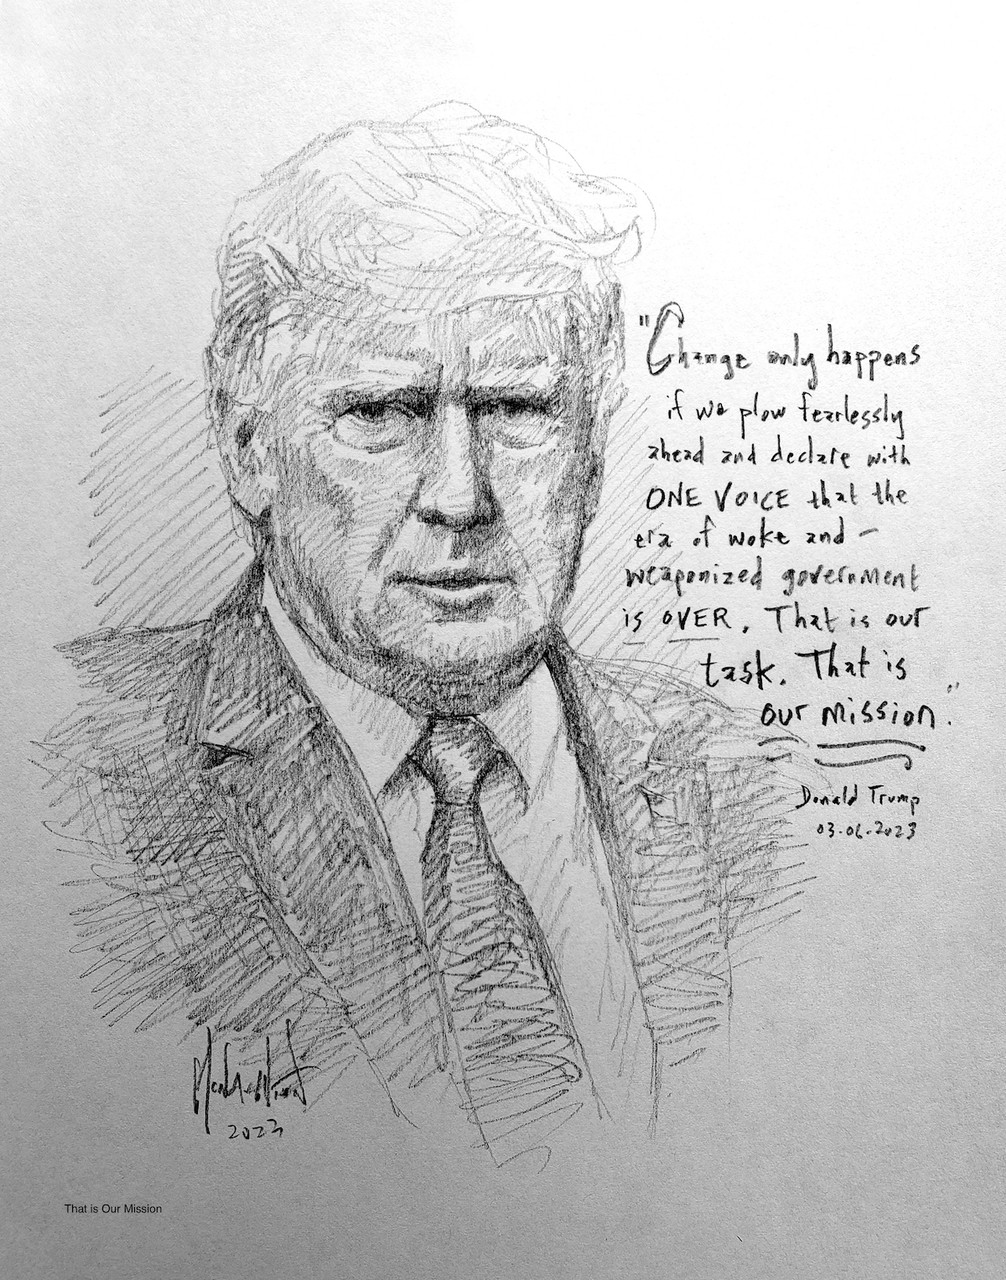 "Change only happens
if we plow fearlessly
ahead and declare with
ONE VOICE that the
era of woke and –
weaponized government
is OVER. That is our
task. That is
our mission."
Donald Trump
03.06.2023
2023
That is Our Mission